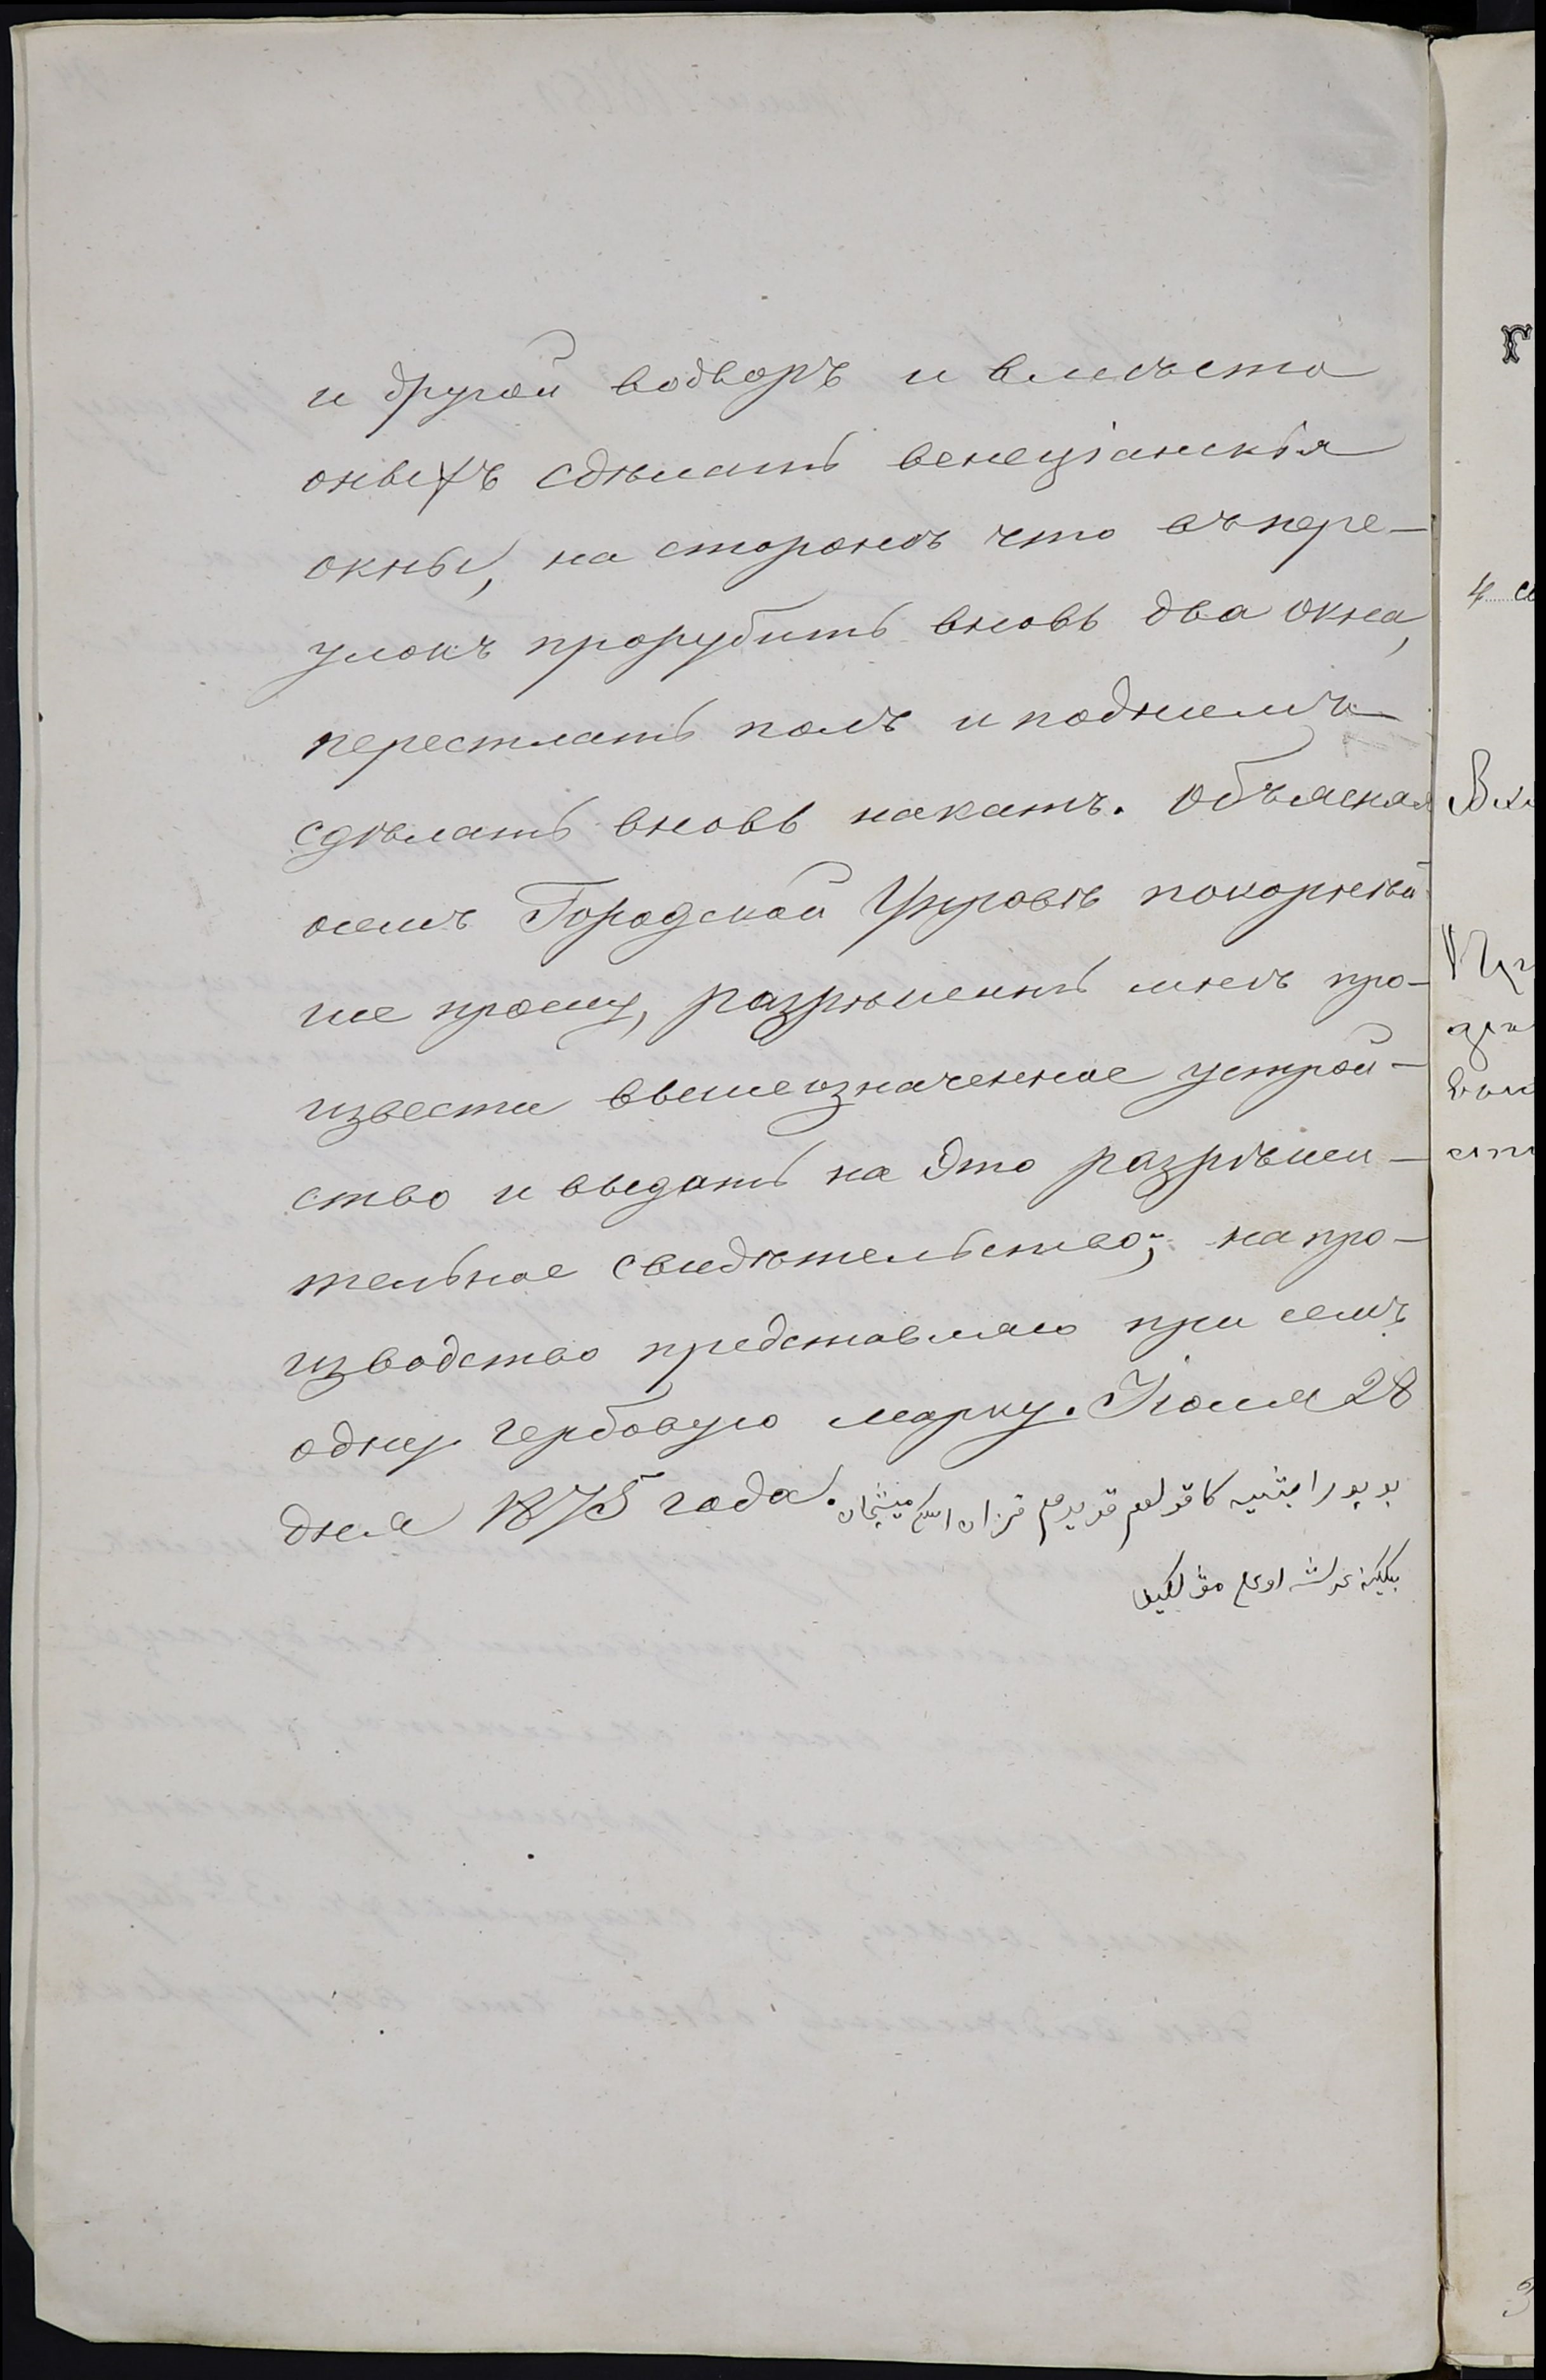 и другой водворъ и вмѣсто
оныхъ сдѣлать венеціанскія
окны, на сторонѣ что въ пере-
улокъ прорубить вновь два окна,
перестлать полъ и поднимъ
сдѣлать вновь накатъ. Объясняя
осемъ Городской Управѣ покорнѣй
ше прошу, разрѣшить мнѣ про-
извести вышеозначенное устрой-
ство и выдать на это разрѣши-
тельное свидѣтельство; на про-
изводство представляю при семъ
одну гербовую марку. Іюля 28
дня 1875 года.